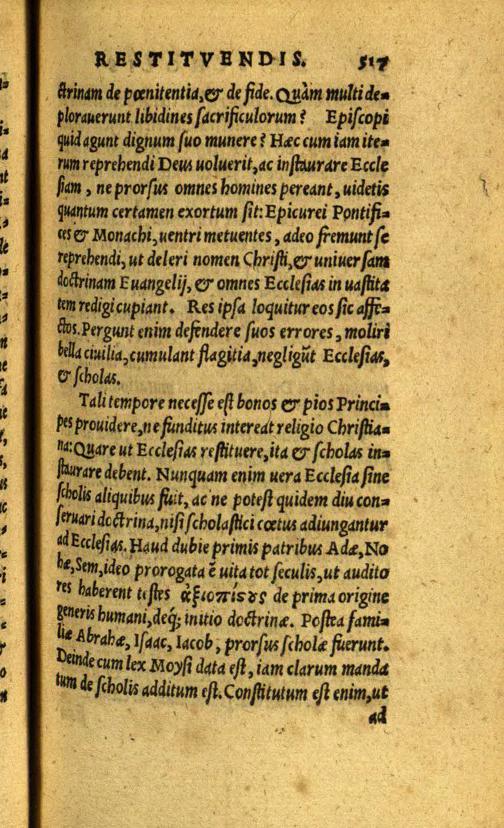 RESTITVENDIS. 517
ctrinam de pœnitentia, & de fide. Quàm multi de-
plorauerunt libidines sacrificulorum? Episcopi
quid agunt dignum suo munere? Hæc cum iam ite-
rum reprehendi Deus uoluerit, ac instaurare Eccle
siam, ne prorsus omnes homines pereant, uidetis
quantum certamen exortum sit: Epicurei Pontifi-
ces & Monachi, uentri metuentes, adeo fremunt se
reprehendi, ut deleri nomen Christi, & uniuersam
doctrinam Euangelij, & omnes Ecclesias in uastita
tem redigi cupiant. Res ipsa loquitur eos sic affe-
ctos. Pergunt enim defendere suos errores, moliri
bella ciuilia, cumulant flagitia, negligũt Ecclesias,
& scholas.
Tali tempore necesse est bonos & pios Princi-
pes prouidere, ne funditus intereat religio Christia-
na: Quare ut Ecclesias restituere, ita & scholas in-
staurare debent. Nunquam enim uera Ecclesia sine
scholis aliquibus fuit, ac ne potest quidem diu con-
seruari doctrina, nisi scholastici cœtus adiungantur
ad Ecclesias. Haud dubie primis patribus Adæ, No
hæ, Sem, ideo prorogata ẽ uita tot seculis, ut audito
res haberent testes ἀξιοπίςȣς de prima origine
generis humani, deq́; initio doctrinæ. Postea fami-
liæ Abrahæ, Isaac, Iacob, prorsus scholæ fuerunt.
Deinde cum lex Moysi data est, iam clarum manda
tum de scholis additum est. Constitutum est enim, ut
ad